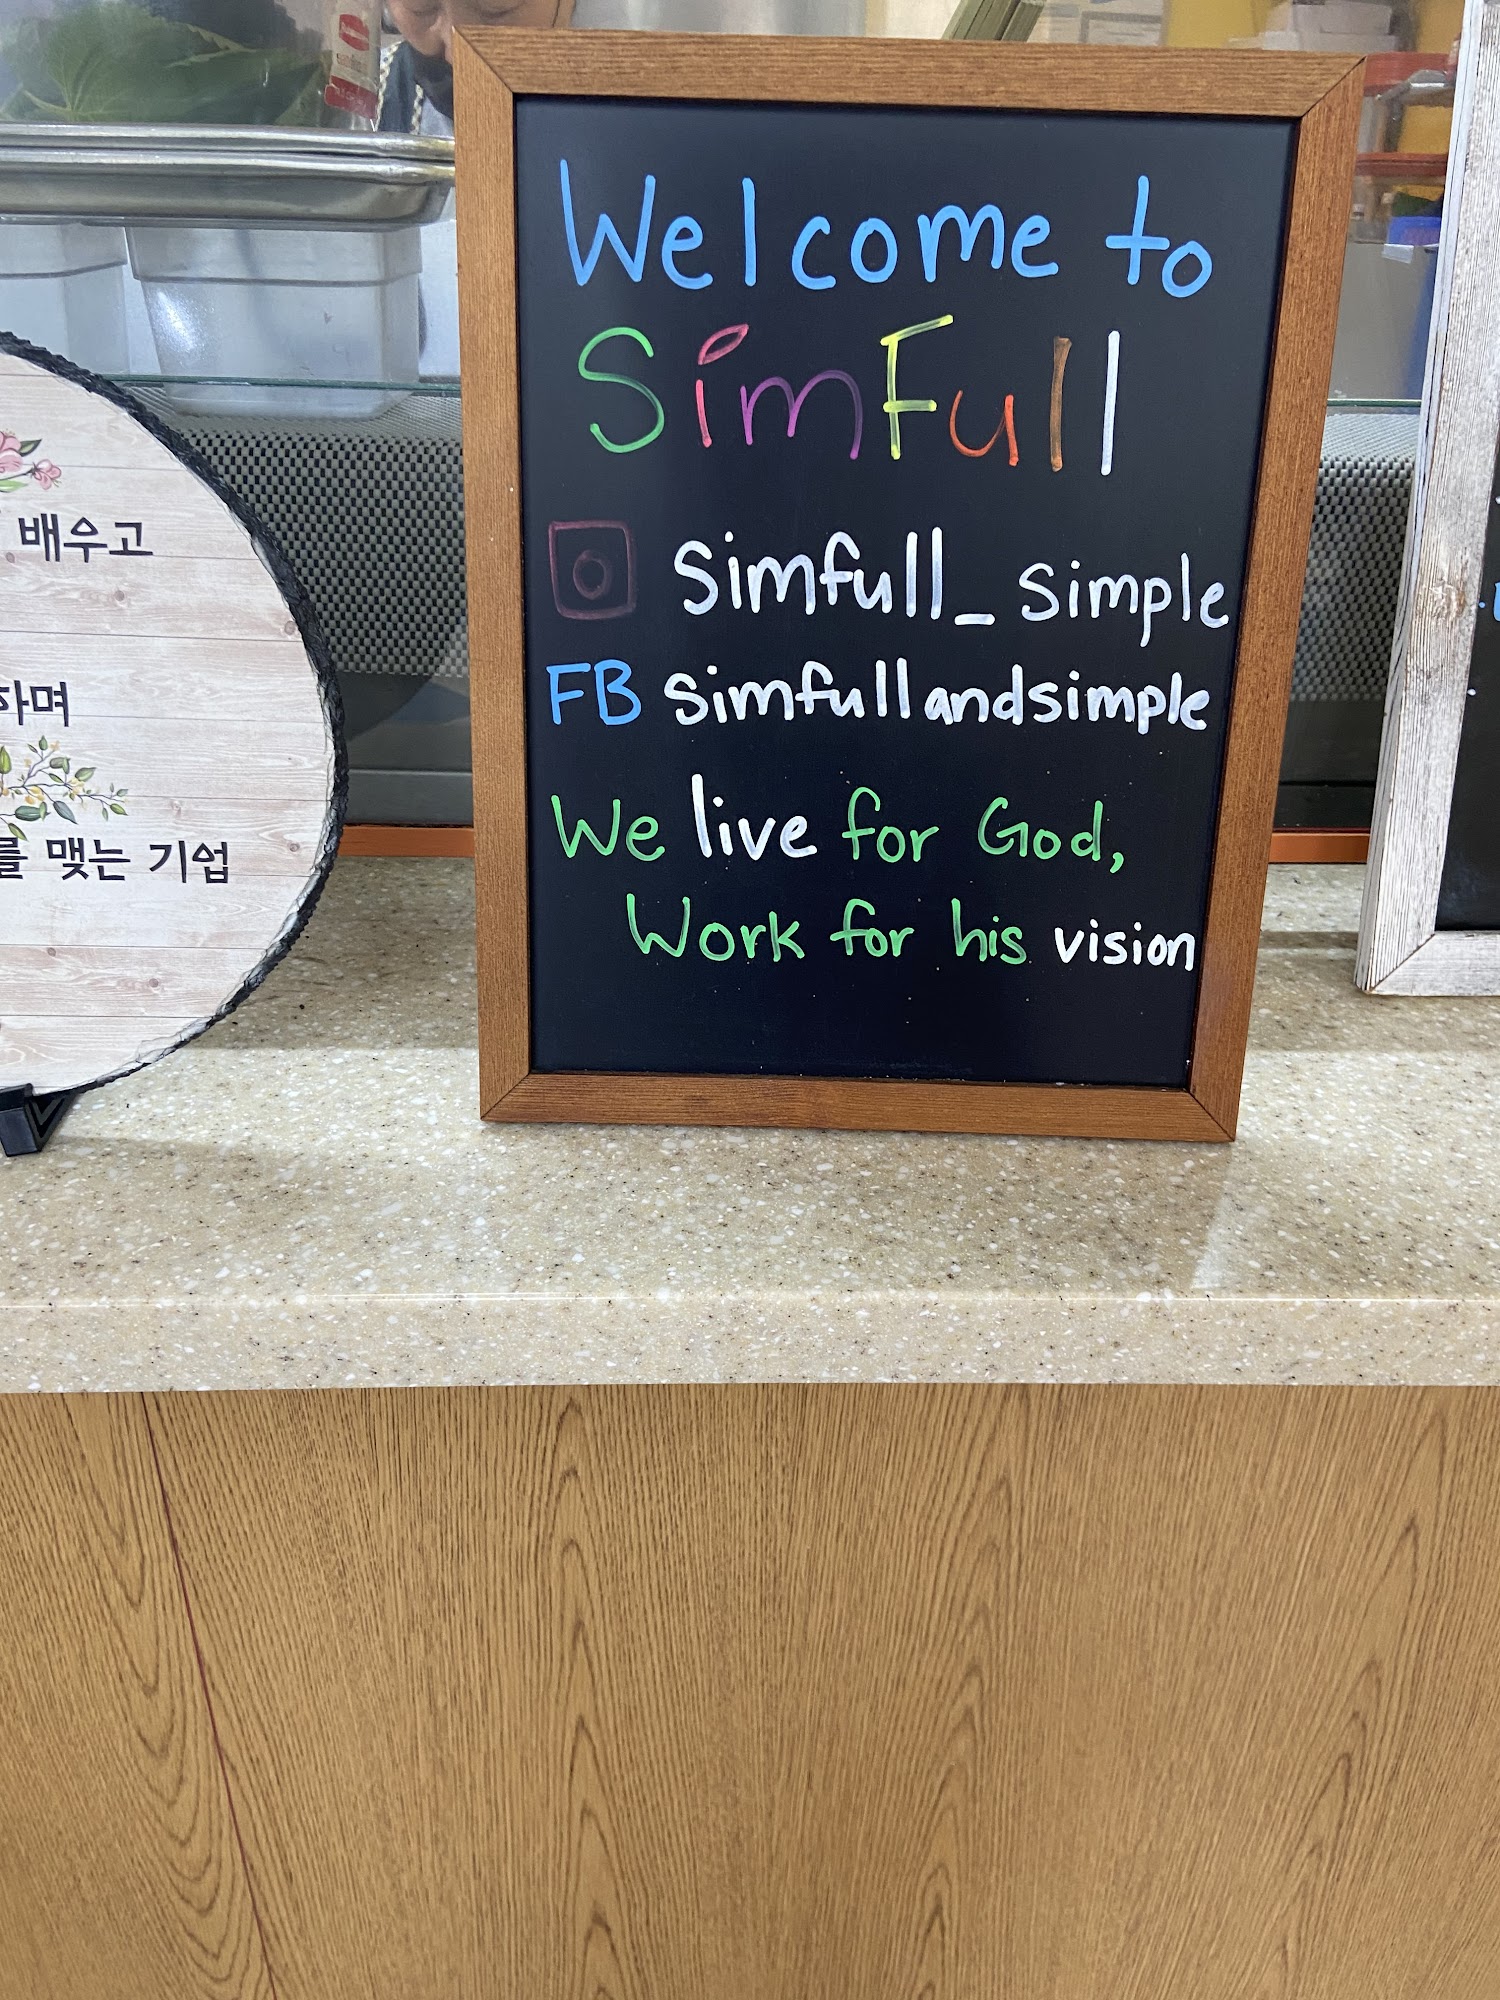 배우고
하며
를 맺는 기업
Welcome to
SimFull
simfull_simple
FB simfullandsimple
We live for God,
Work for his vision